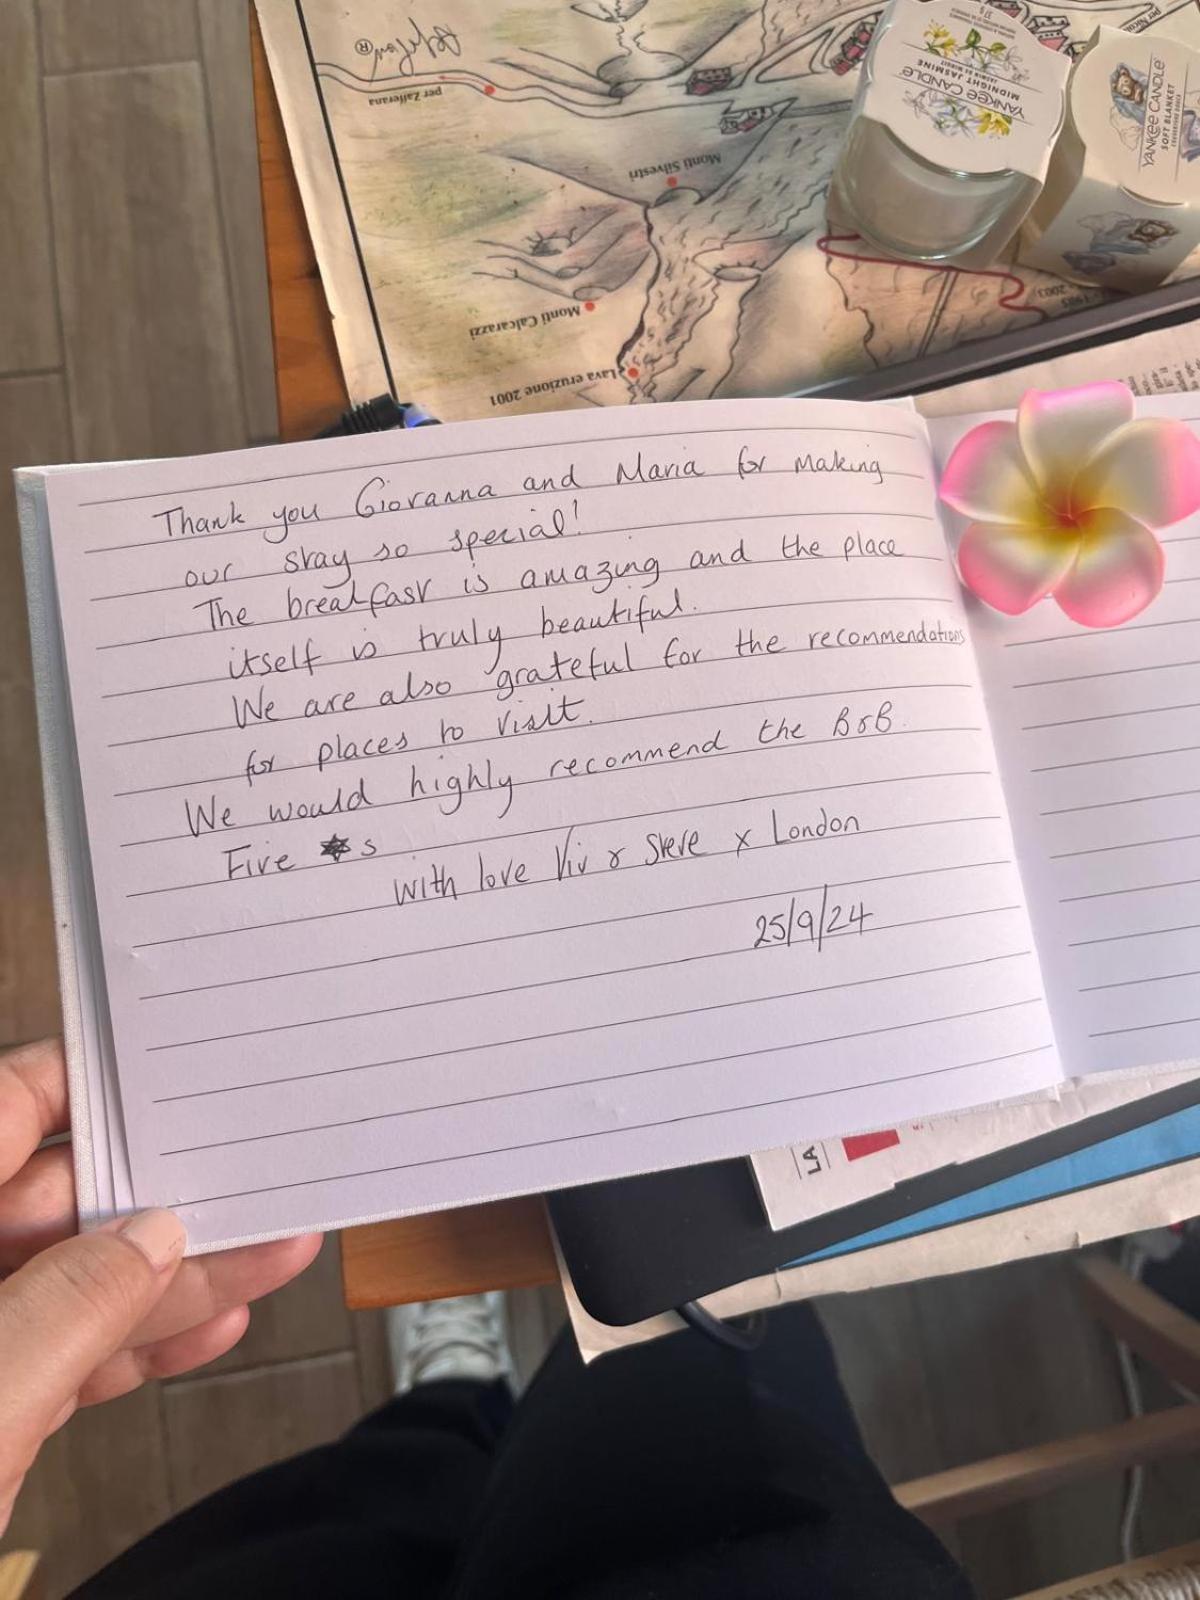 Defelou®
per Zafferana
Monti Silvestri
Monti Calcarazzi
Lava eruzione 2001
per Nicol
YANKEE CANDLE
MIDNIGHT JASMINE
YANKEE CANDLE
SOFT BLANKET
Thank you Giovanna and Maria for making
our stay so special!
The breakfast is amazing and the place
itself is truly beautiful.
We are also grateful for the recommendations
for places to visit.
We would highly recommend the B&B.
Five ★s
With love Viv & Steve x London
25/9/24
LA